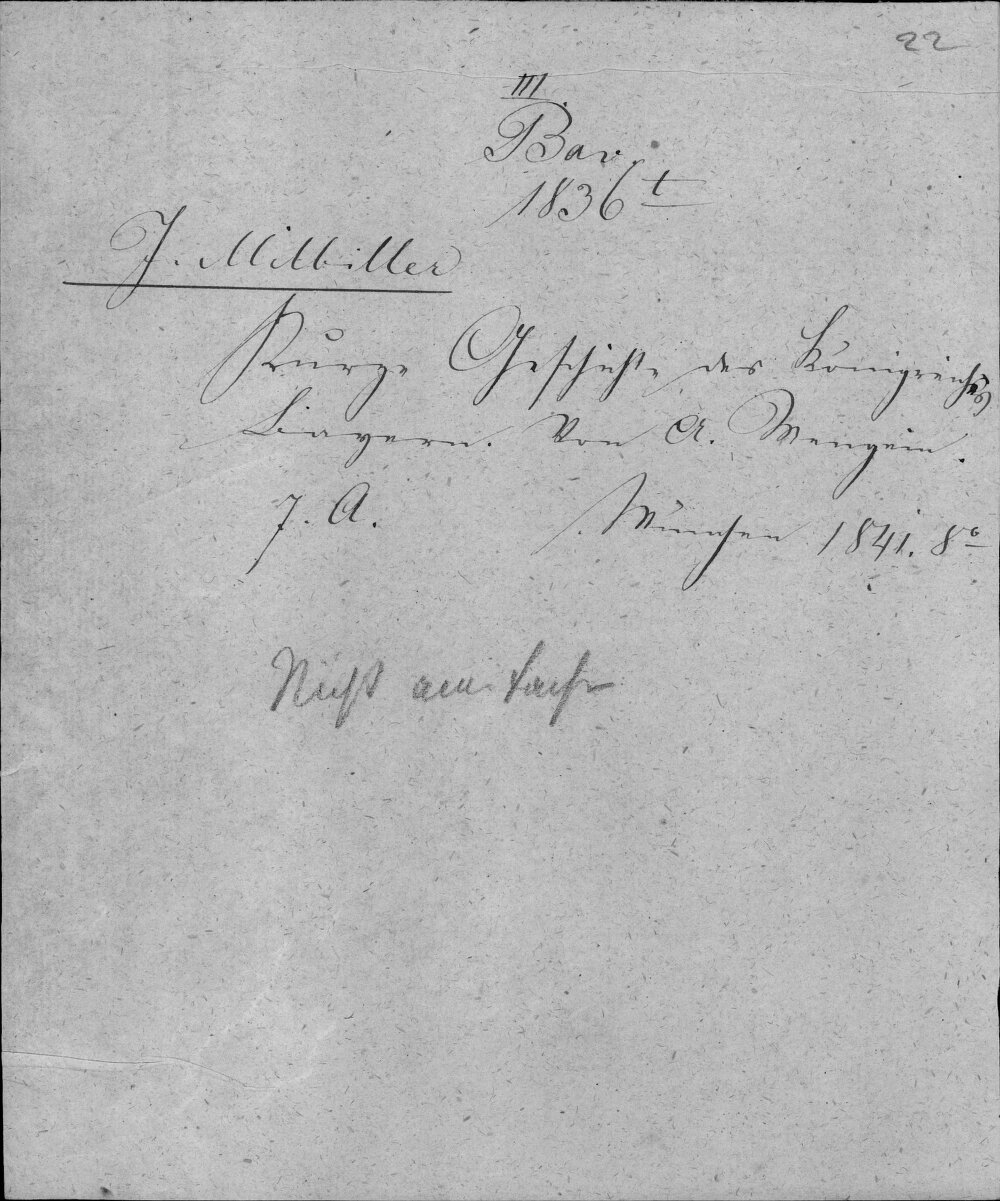 22
III
Bav.
1836 t
J. Milbiller
Kurze Geschichte des Königreichs
Bayern. Von A. Wengein.
7. A. München 1841. 8°
Nicht am Fache